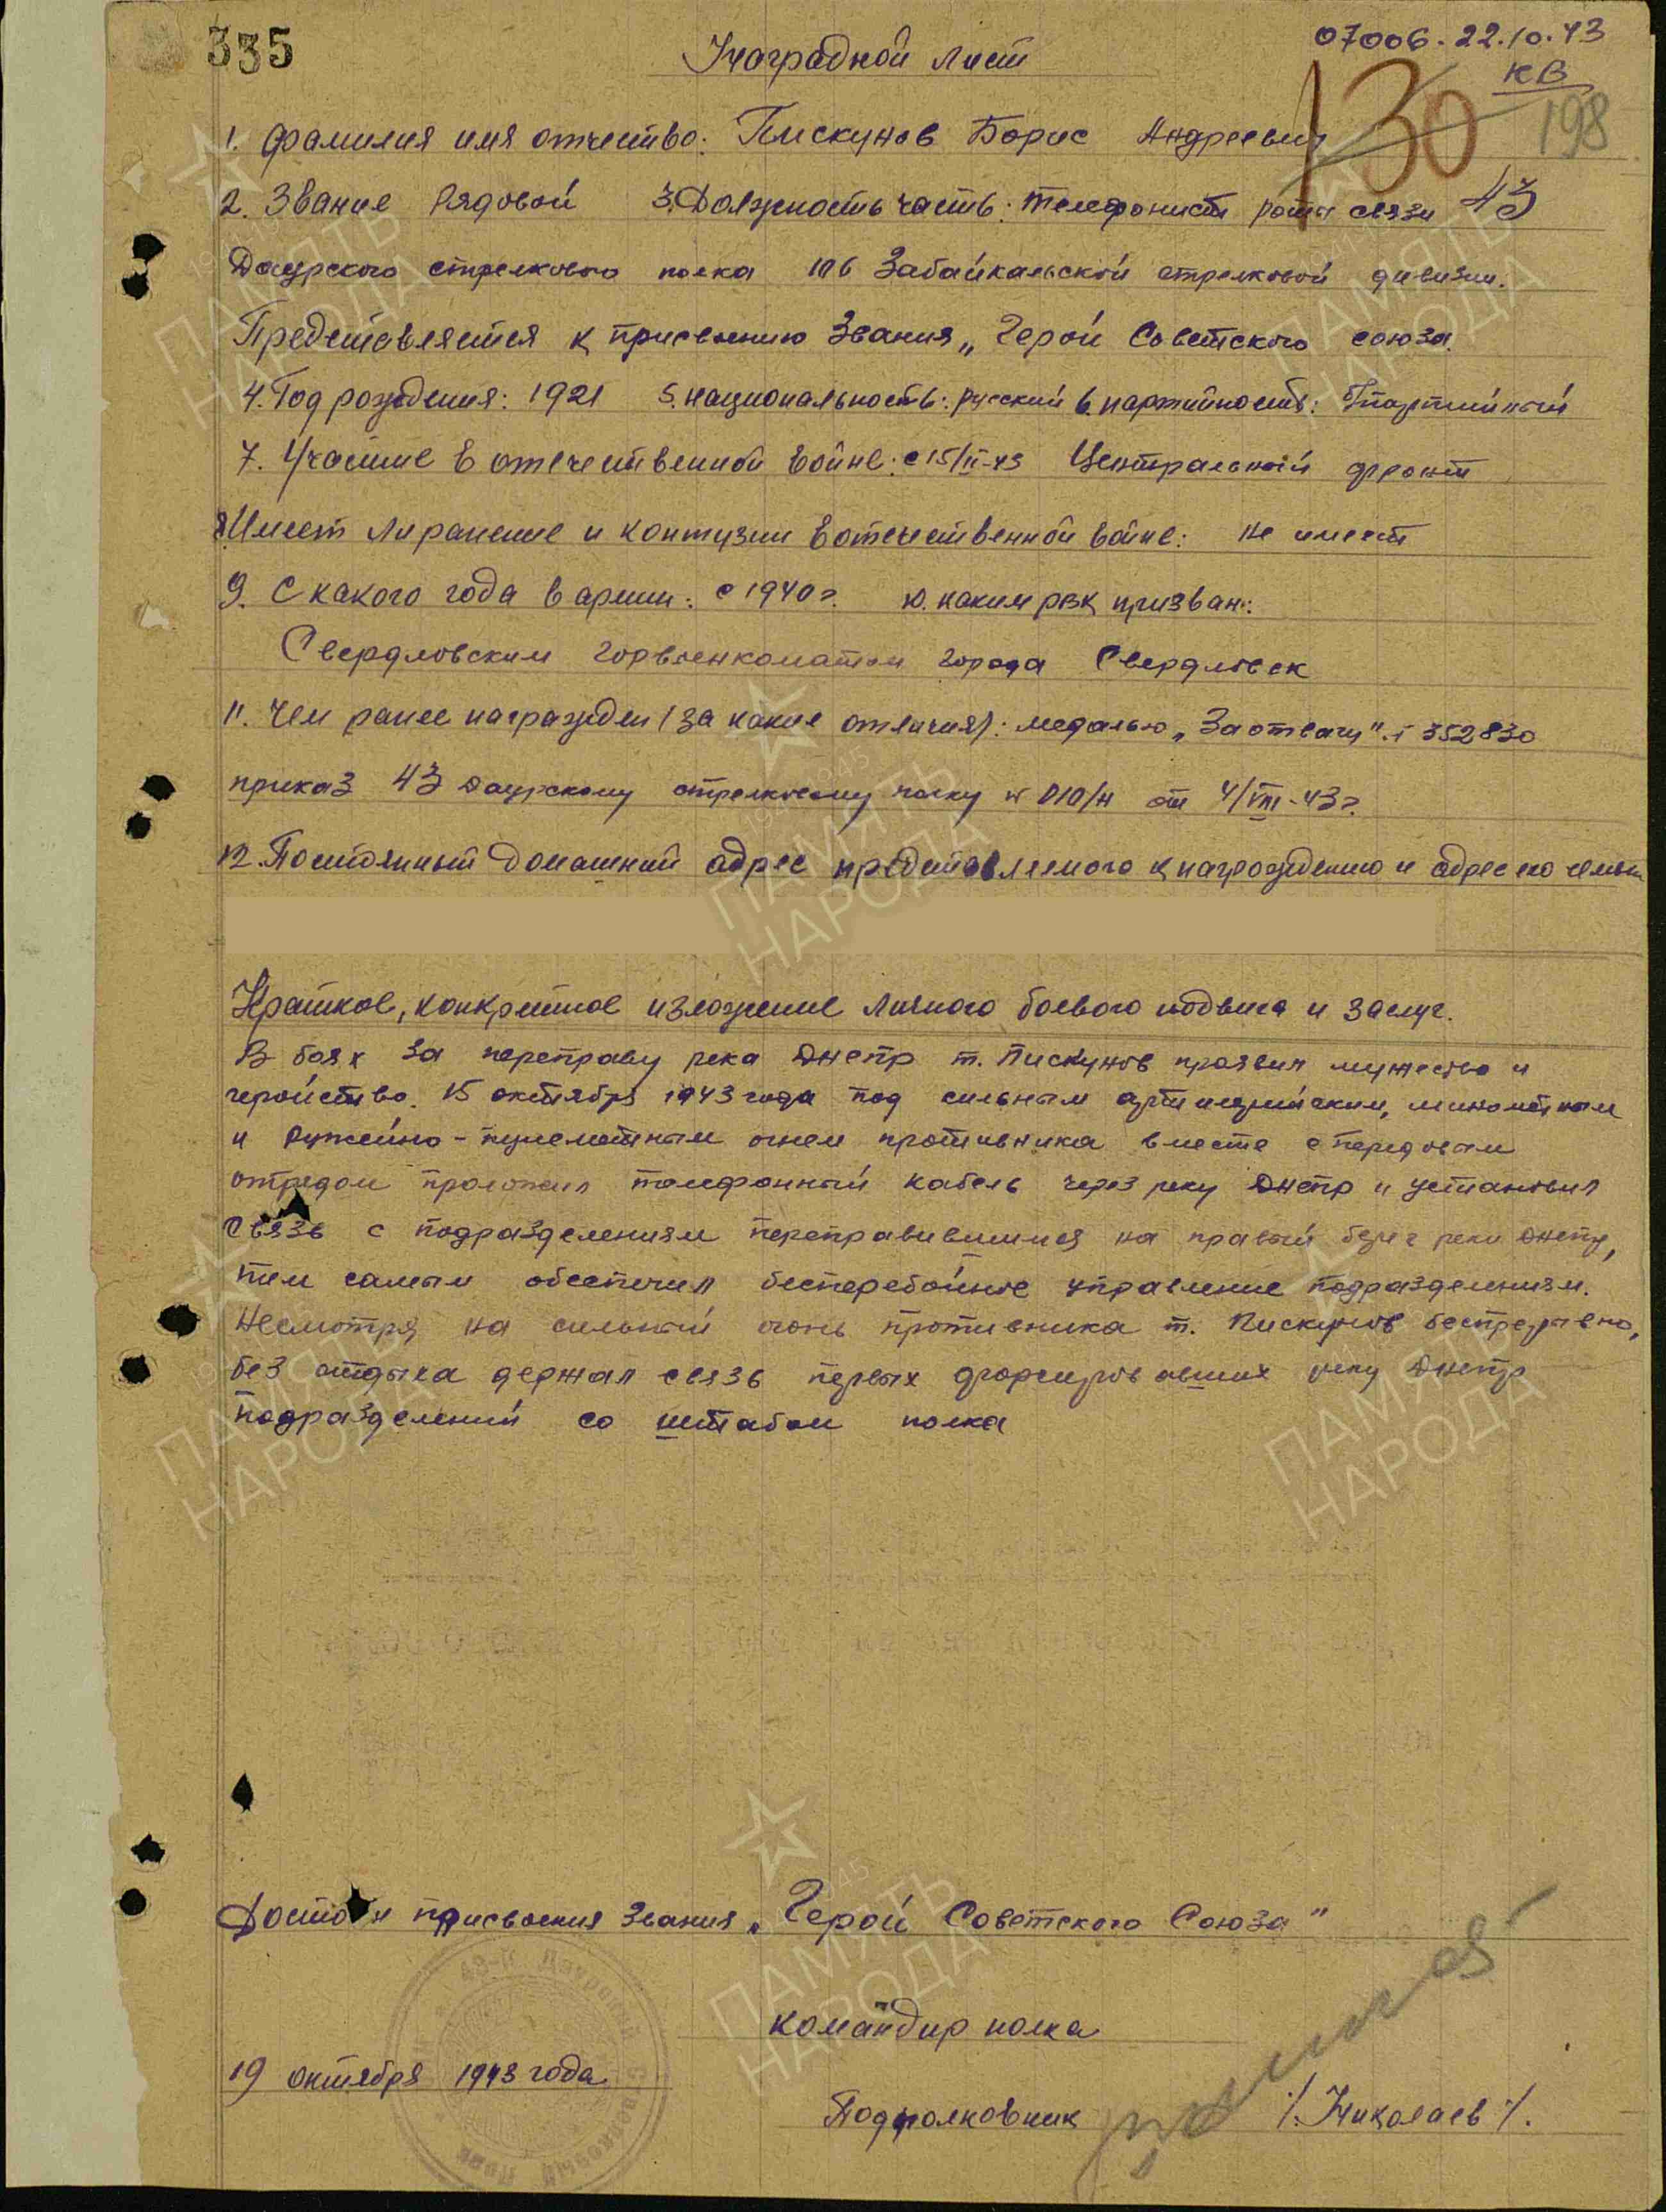 335
07006. 22.10.43
КВ
130
198
Наградной лист
1. Фамилия имя отчество: Пискунов Борис Андреевич
2. Звание Рядовой 3. Должность часть: телефонист роты связи 43
Даурского стрелкового полка 106 Забайкальской стрелковой дивизии.
Представляется к присвоению Звания „Герой Советского союза.
4. Год рождения: 1921 5. национальность: русский 6. партийность: б/партийный
7. Участие в отечественной войне: с 15/II-43 Центральный фронт
8. Имеет ли ранение и контузии в отечественной войне: не имеет
9. С какого года в армии: с 1940 г. 10. каким РВК призван:
Свердловским горвоенкоматом города Свердловск
11. Чем ранее награжден (за какие отличия): медалью „За отвагу" 352830
приказ 43 Даурскому стрелковому полку № 010/н от 4/VIII-43 г.
12. Постоянный домашний адрес представляемого к награждению и адрес его семьи
Краткое, конкретное изложение личного боевого подвига и заслуг.
В боях за переправу река Днепр т. Пискунов проявил мужество и
геройство. 15 октября 1943 года под сильным артиллерийским, минометным
и ружейно-пулеметным огнем противника вместе с передовым
отрядом проложил телефонный кабель через реку Днепр и установил
связь с подразделениям переправившимся на правый берег реки Днепр,
тем самым обеспечил бесперебойное управление подразделениям.
Несмотря на сильный огонь противника т. Пискунов беспрерывно,
без отдыха держал связь первых форсировавших реку Днепр
подразделений со штабом полка
Достоин присвоения Звания „Герой Советского Союза"
командир полка
19 октября 1943 года
Подполковник /. Николаев /.
ПАМЯТЬ НАРОДА
1941-1945